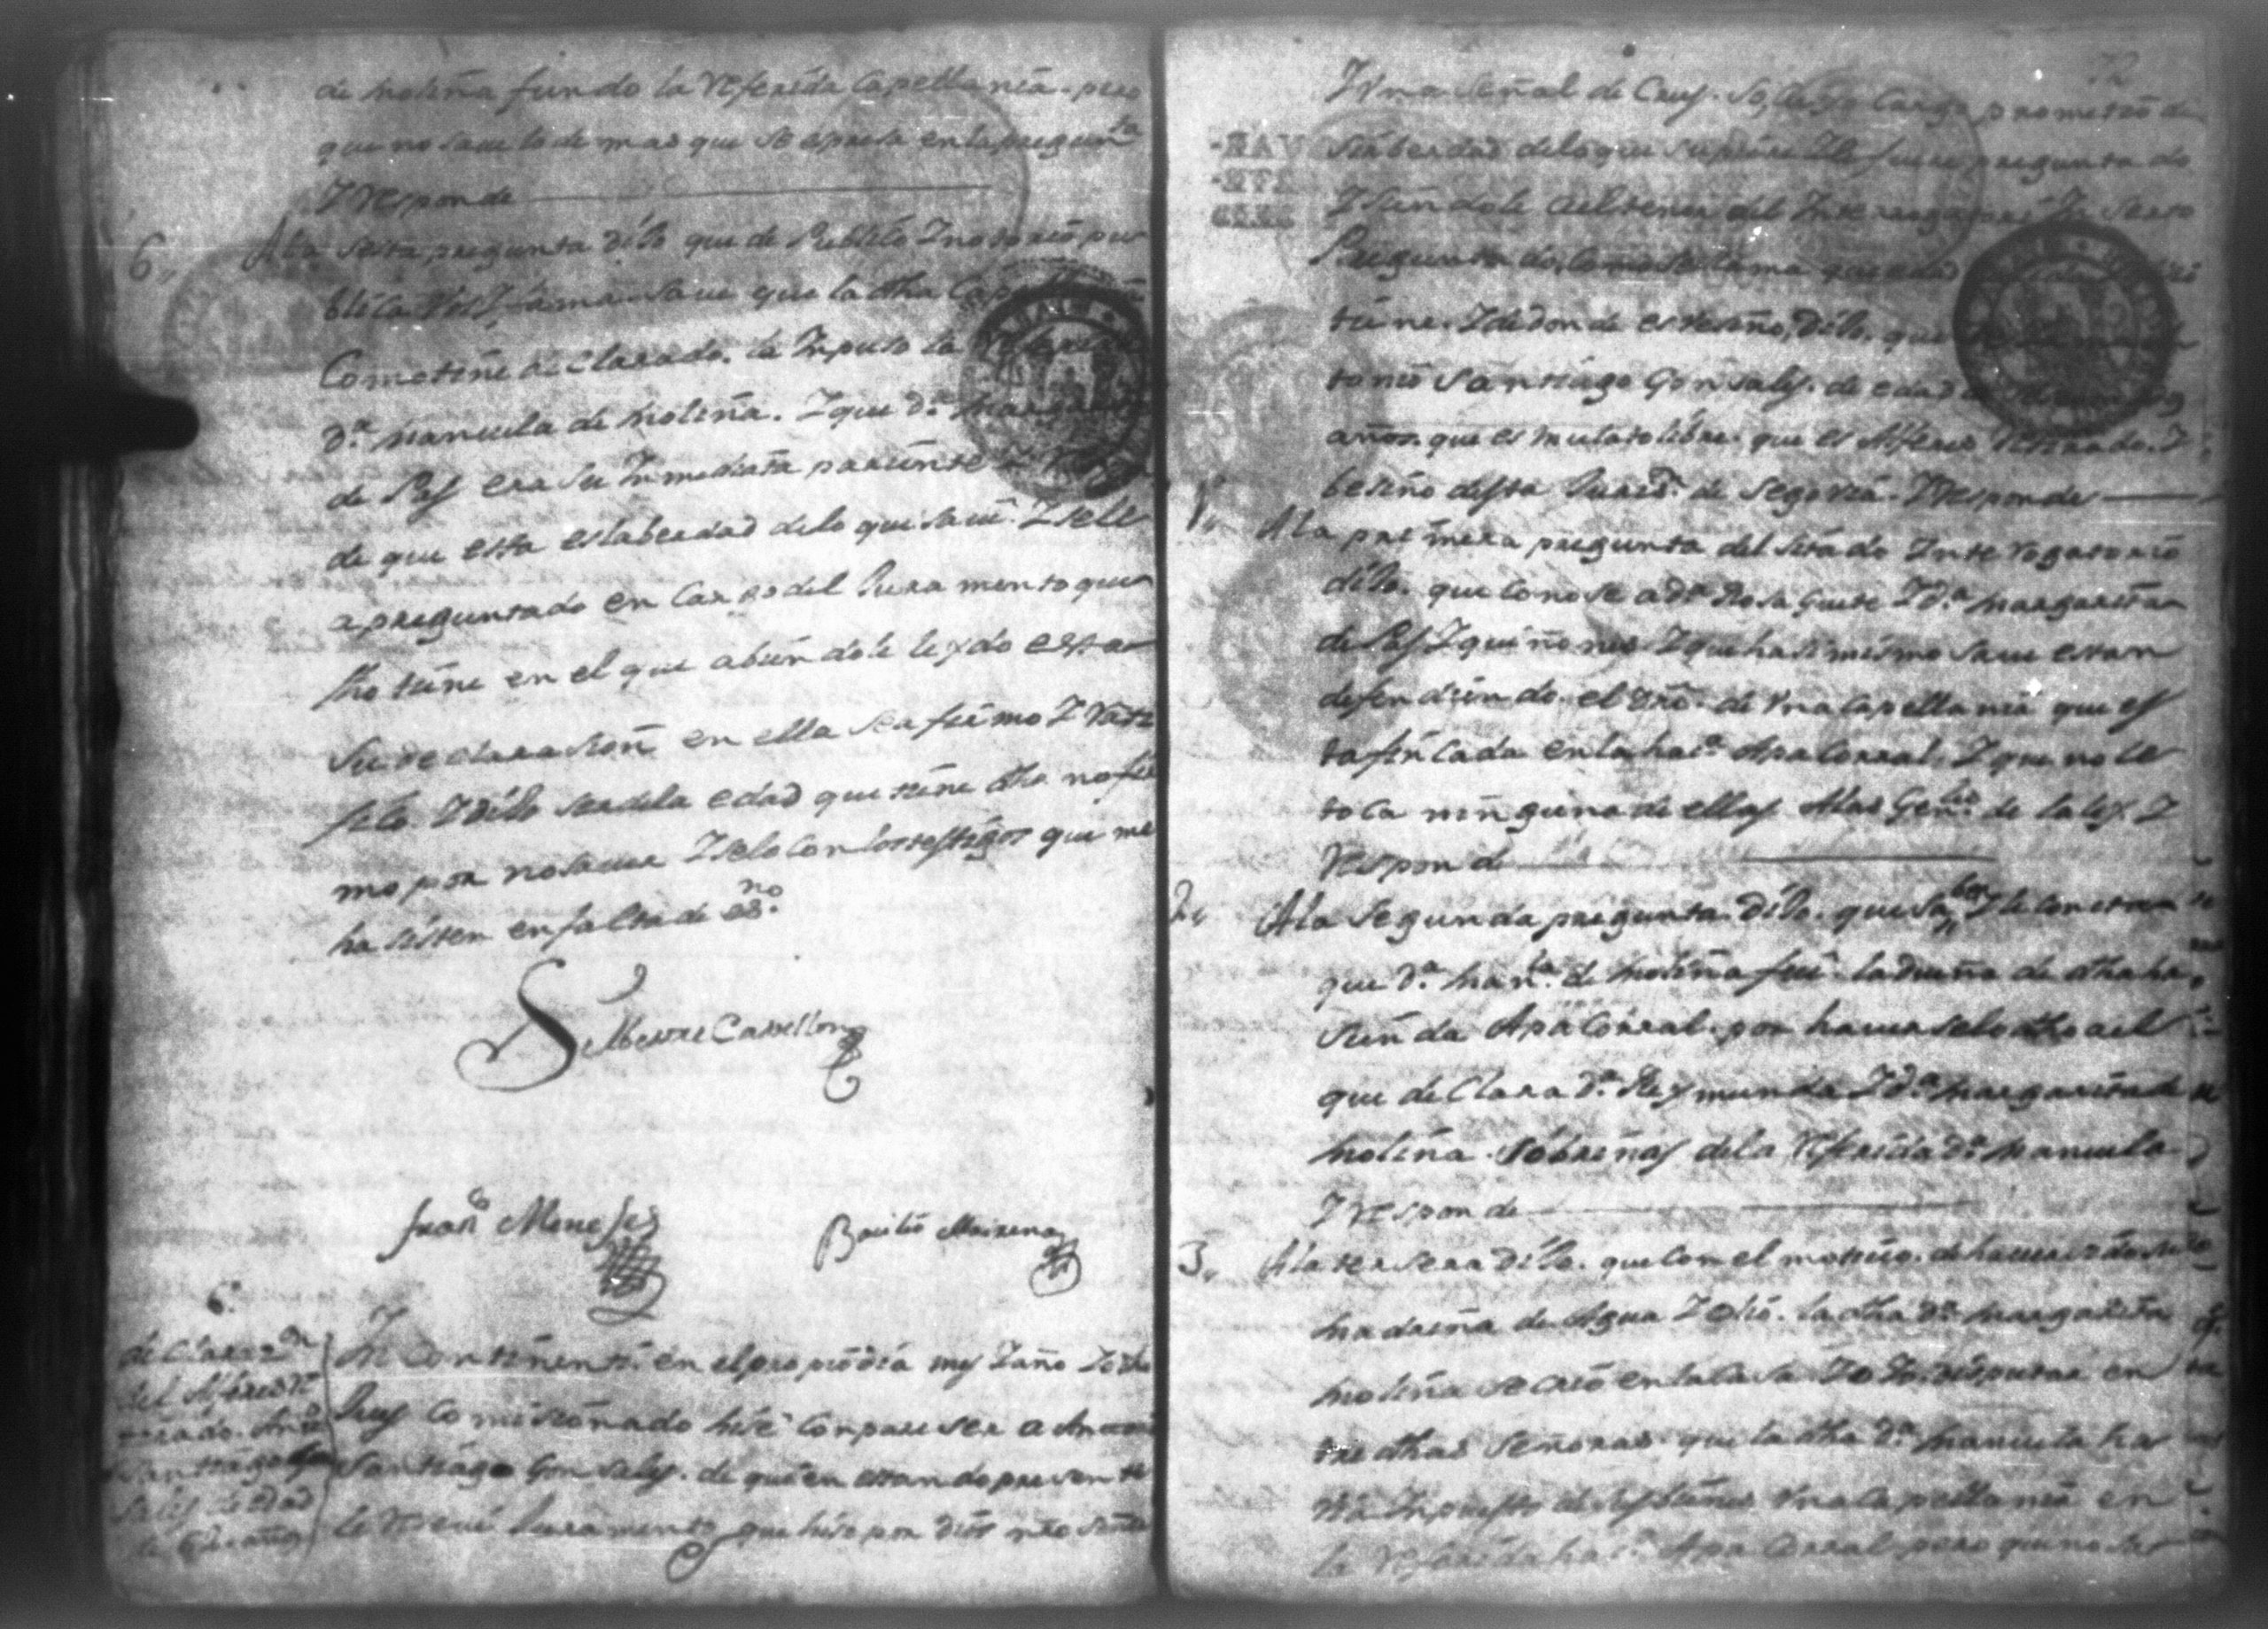 de Moliña fundo la referida Capellania. pero
que no saue lo demas que se espresa en la pregunta
Y responde
6,, A la sesta pregunta dijo que de Publico Y notorio pu
blica vos Y fama saue que la dha
Como tiene declarado. la Inpuso la
Dª Manuela de Moliña. Y que Dª
de Pas era su Inmediata pariente Y
de que esta es la berdad de lo que saue. Y se le
a preguntado en Cargo del Juramento que
fho tiene en el que abiendole leydo esta
su declarasion en ella se afirmo Y rati
fico. Y dijo ser de la edad que tiene dha no fir
mo por no sauer Y selo con los testigos que me
ha sisten en falta de esno.
Selbestre Castellon
Franco Meneses
Basilio Mairena
6ª
declarazn
del Alferes re
tirado. Anto
Santiago Gon
sales de edad
de años
In Continenti en el propio dia mes Y año Yo dho
Jues Comisionado hise Conpareser a Antoni
Santiago Gonsales. de quien estando presente
le reseui Juramento que hiso por Dios nro Señor
72
Y Vna señal de Crus. so Cargo prometio de
sir berdad de lo que supiere Y le fuere preguntado
Y siendole al tenor del Interrogatorio
Preguntado, Como se llama que edad
tiene. Y de donde es besino, dijo. que
tonio Santiago Gonsales. de edad
años. que es mulato libre. que es Alferes retirado. Y
besino desta Jurisn. de Segovia. Y responde
1,, A la primera pregunta del sitado Interrogatorio
dijo. que conose a Dª Rosa Guete Y Dª Margarita
de Pas Y quiñones Y que hasimismo saue estan
defendiendo. el dro. de Vna Capellania que es
ta fincada en la hasda. Apa Corral. Y que no le
toca ninguna de ellas. A las Genles. de la ley. Y
responde
2,, A la Segunda pregunta. dijo. que saber Y le consta
que Dª Manla. de Moliña fue la dueña de dha ha
sienda Apa Corral. por hauerselo dho al
que declara Dª Reymunda Y Dª Margarita de
Moliña. sobrinas de la referida Dª Manuela
Y responde
3,, A la tersera dijo. que con el motiuo. de hauer sido su
Madrina de Agua Y olio. la dha Dª Margarita
Moliña se crio en la casa Y disputar en
tre dhas señoras que la dha Dª Manuela ha
Vna Capellania en
la referida hasda. Apa Corral pero que no sa